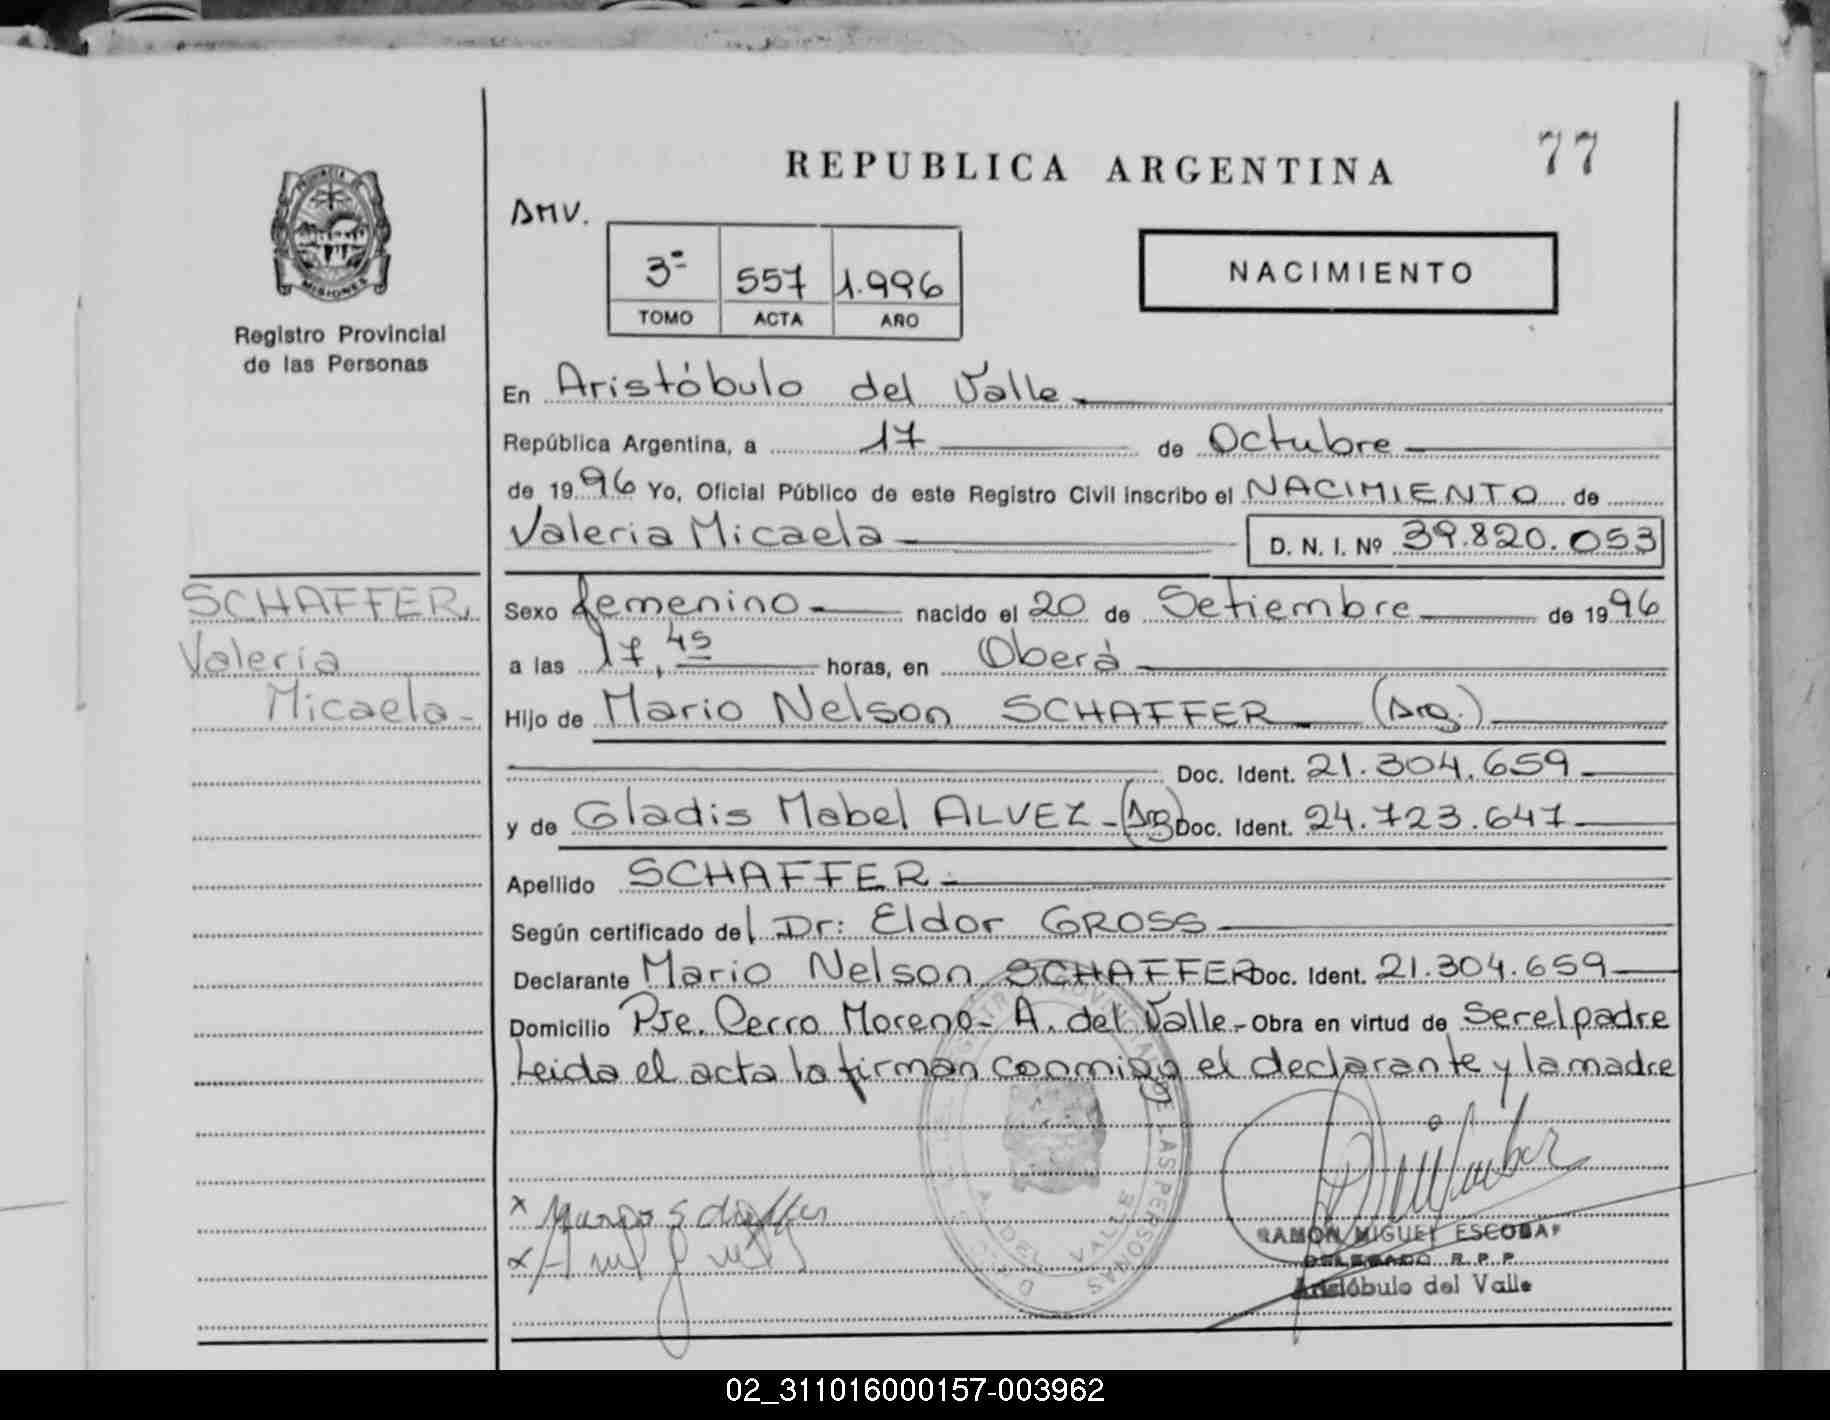 77
REPUBLICA ARGENTINA
PROVINCIA DE
MISIONES
Registro Provincial
de las Personas
AMV.
3º 557 1.996
TOMO ACTA AÑO
NACIMIENTO
En Aristóbulo del Valle
República Argentina, a 17 de Octubre
de 1996 Yo, Oficial Público de este Registro Civil inscribo el NACIMIENTO de
Valeria Micaela D. N. I. Nº 39.820.053
SCHAFFER,
Valeria
Micaela-
Sexo femenino nacido el 20 de Setiembre de 1996
a las 17,45 horas, en Oberá
Hijo de Mario Nelson SCHAFFER (Arg.)
Doc. Ident. 21.304.659
y de Gladis Mabel ALVEZ - (Arg) Doc. Ident. 24.723.647
Apellido SCHAFFER
Según certificado del Dr: Eldor GROSS
Declarante Mario Nelson SCHAFFER Doc. Ident. 21.304.659
Domicilio Pje. Cerro Moreno- A. del Valle.- Obra en virtud de Ser el padre
Leida el acta la firman conmigo el declarante y la madre
DE LAS PERSONAS
A. DEL VALLE
RAMON MIGUEL ESCOBAR
DELEGADO R. P. P.
Aristóbulo del Valle
02_311016000157-003962